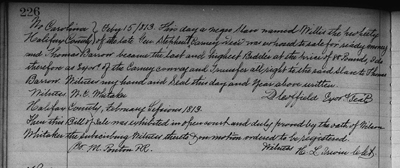 226
No Carolina } Feby 15, 1813. This day a negro slave named Willis the property
Halifax County } of the late Gen Stephen W Carney decd was exposed to sale for ready money
and Thomas Barrow became the last and highest Bidder at the price of
therefore as Exor of the Carney convey and transfer all right to the said slave to Thomas
Barrow. Witness my hand and Seal this day and Year above written
Witness W. E. Whitaker Exor Seal
Halifax County, February Sessions 1813.
Then this Bill of Sale was exhibited in open court and duly proved by the oath of Wilson
Whitaker the subscribing Witness thereto & on motion ordered to be registered.
M. Pinton P.R. Witness L.